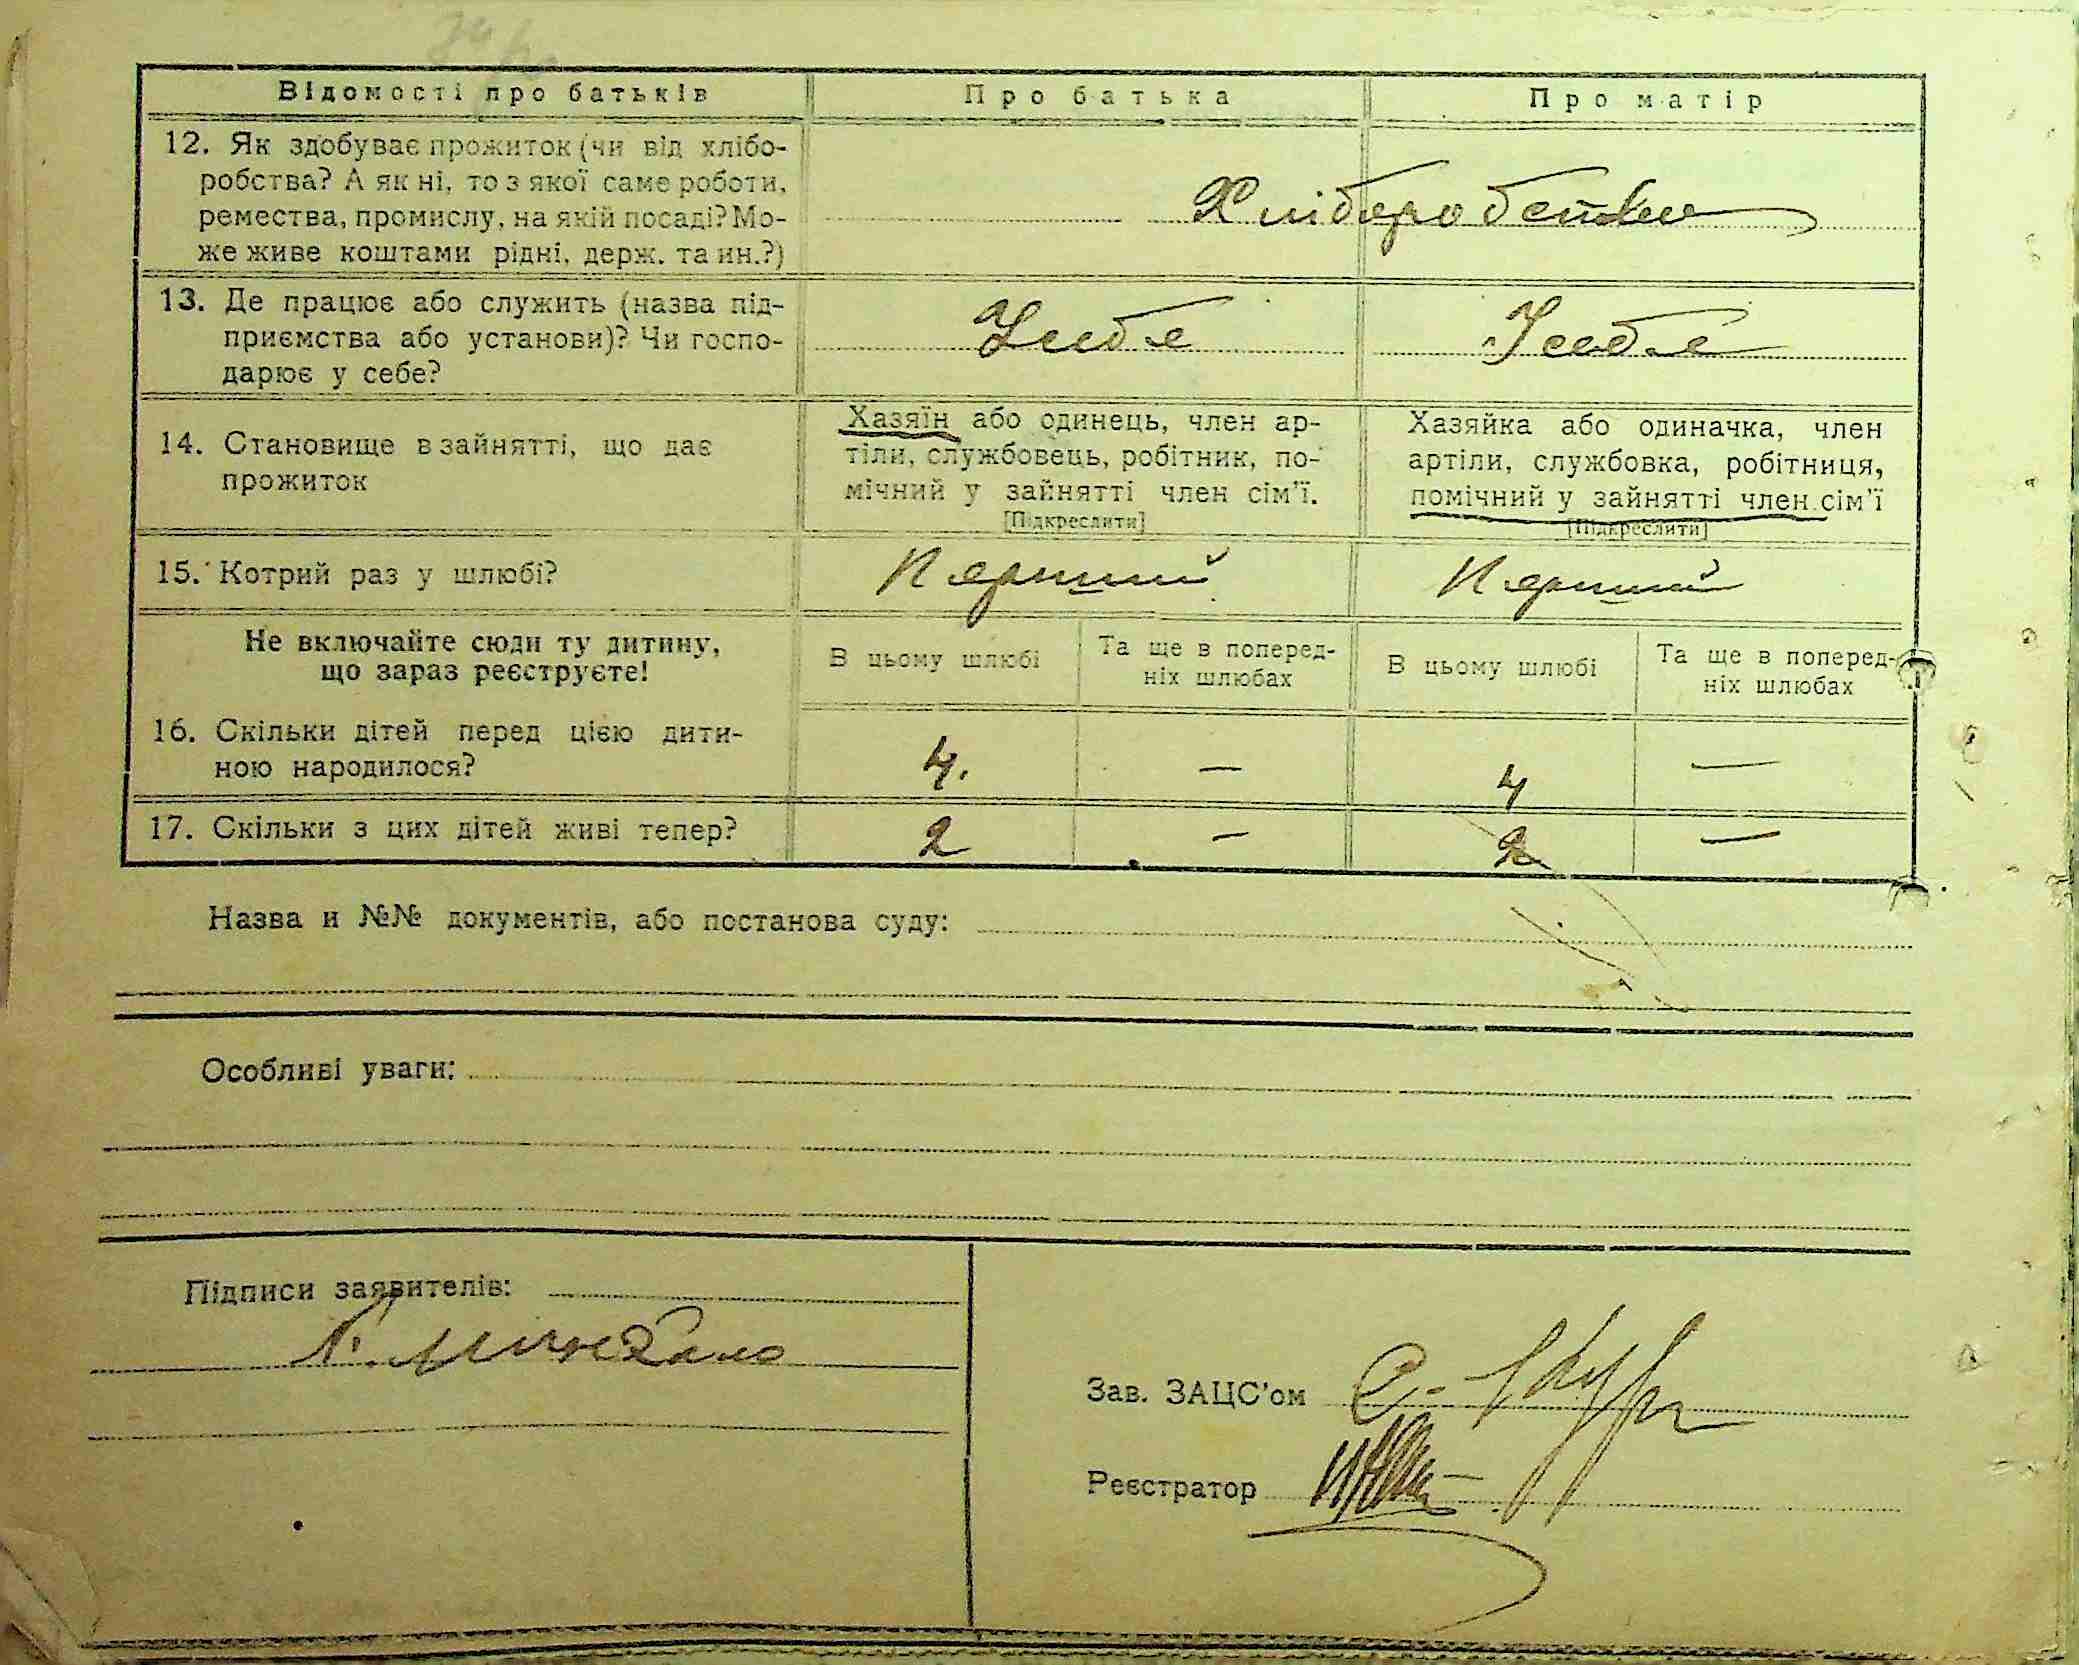 Відомості про батьків
Про батька
Про матір
12. Як здобуває прожиток (чи від хлібо-
робства? А як ні, то з якої саме роботи,
ремества, промислу, на якій посаді? Мо-
же живе коштами рідні, держ. та ин.?)
Хліборобство
13. Де працює або служить (назва під-
приємства або установи)? Чи госпо-
дарює у себе?
У себе
У себе
14. Становище в зайнятті, що дає
прожиток
Хазяїн або одинець, член ар-
тіли, службовець, робітник, по-
мічний у зайнятті член сім'ї.
[Підкреслити]
Хазяйка або одиначка, член
артіли, службовка, робітниця,
помічний у зайнятті член сім'ї
[Підкреслити]
15. Котрий раз у шлюбі?
Перший
Перший
Не включайте сюди ту дитину,
що зараз реєструєте!
В цьому шлюбі
Та ще в поперед-
ніх шлюбах
В цьому шлюбі
Та ще в поперед-
ніх шлюбах
16. Скільки дітей перед цією дити-
ною народилося?
4.
—
4
—
17. Скільки з цих дітей живі тепер?
2
—
2
—
Назва и №№ документів, або постанова суду:
Особливі уваги:
Підписи заявителів:
Зав. ЗАЦС'ом
Реєстратор